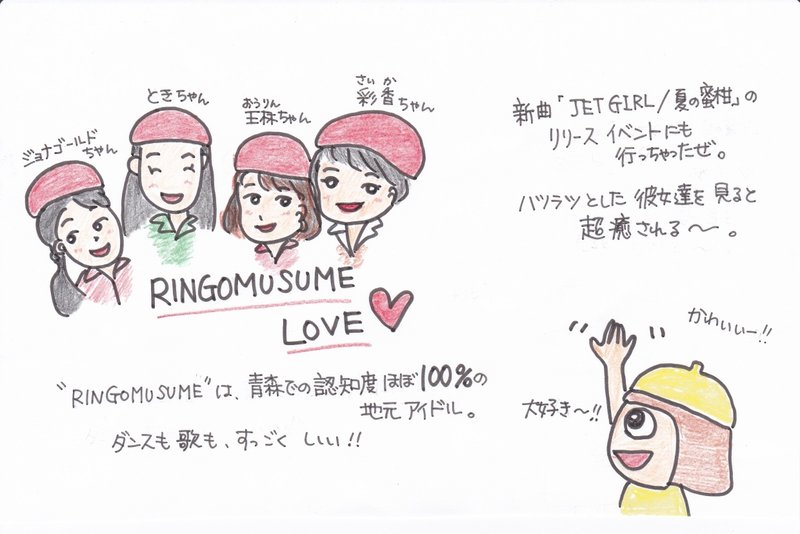 ジョナゴールド
ちゃん
ときちゃん
おうりん
王林ちゃん
さいか
彩香ちゃん
RINGOMUSUME
LOVE
"RINGOMUSUME"は、青森での認知度ほぼ100%の
地元アイドル。
ダンスも歌も、すっごくしいい!!
新曲「JET GIRL/夏の蜜柑」の
リリースイベントにも
行っちゃったぜ。
ハツラツとした彼女達を見ると
超癒される〜。
かわいいー!!
大好き〜!!